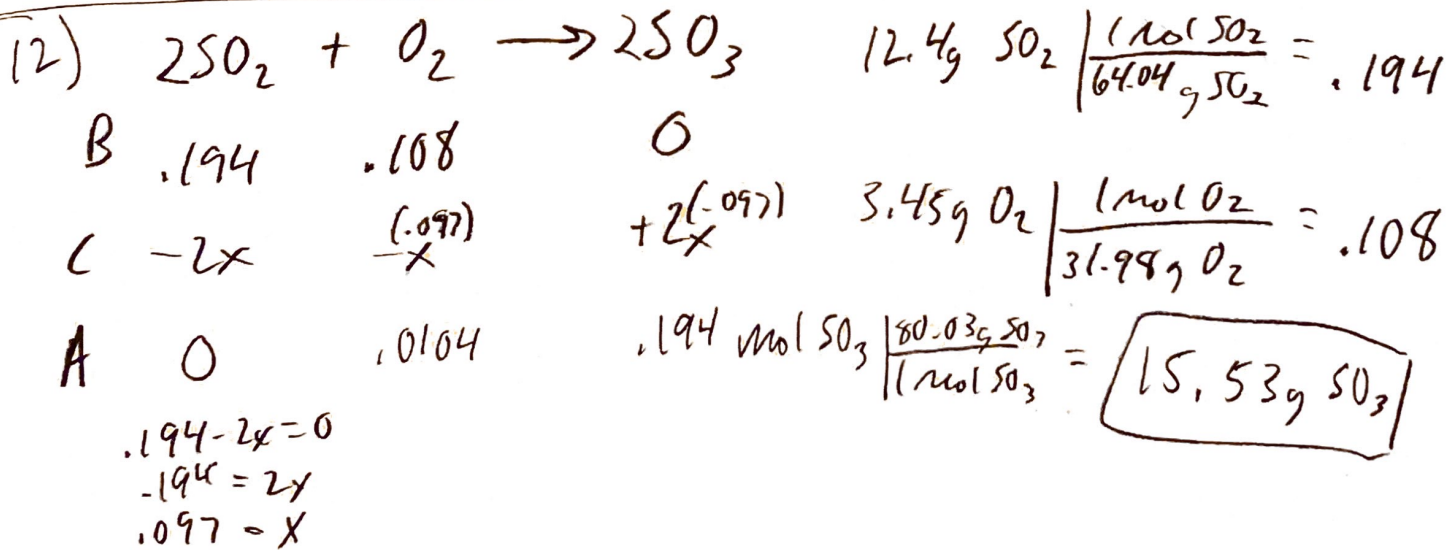 12) 2SO₂ + O₂ → 2SO₃ 12.4g SO₂ | 1 mol SO₂ / 64.04 g SO₂ = .194
B .194 .108 0
C -2x -x (.097) +2x (.097) 3.45g O₂ | 1 mol O₂ / 31.98 g O₂ = .108
A 0 .0104 .194 mol SO₃ | 80.03g SO₃ / 1 mol SO₃ = 15.53g SO₃
.194-2x=0
.194 = 2x
.097 = x